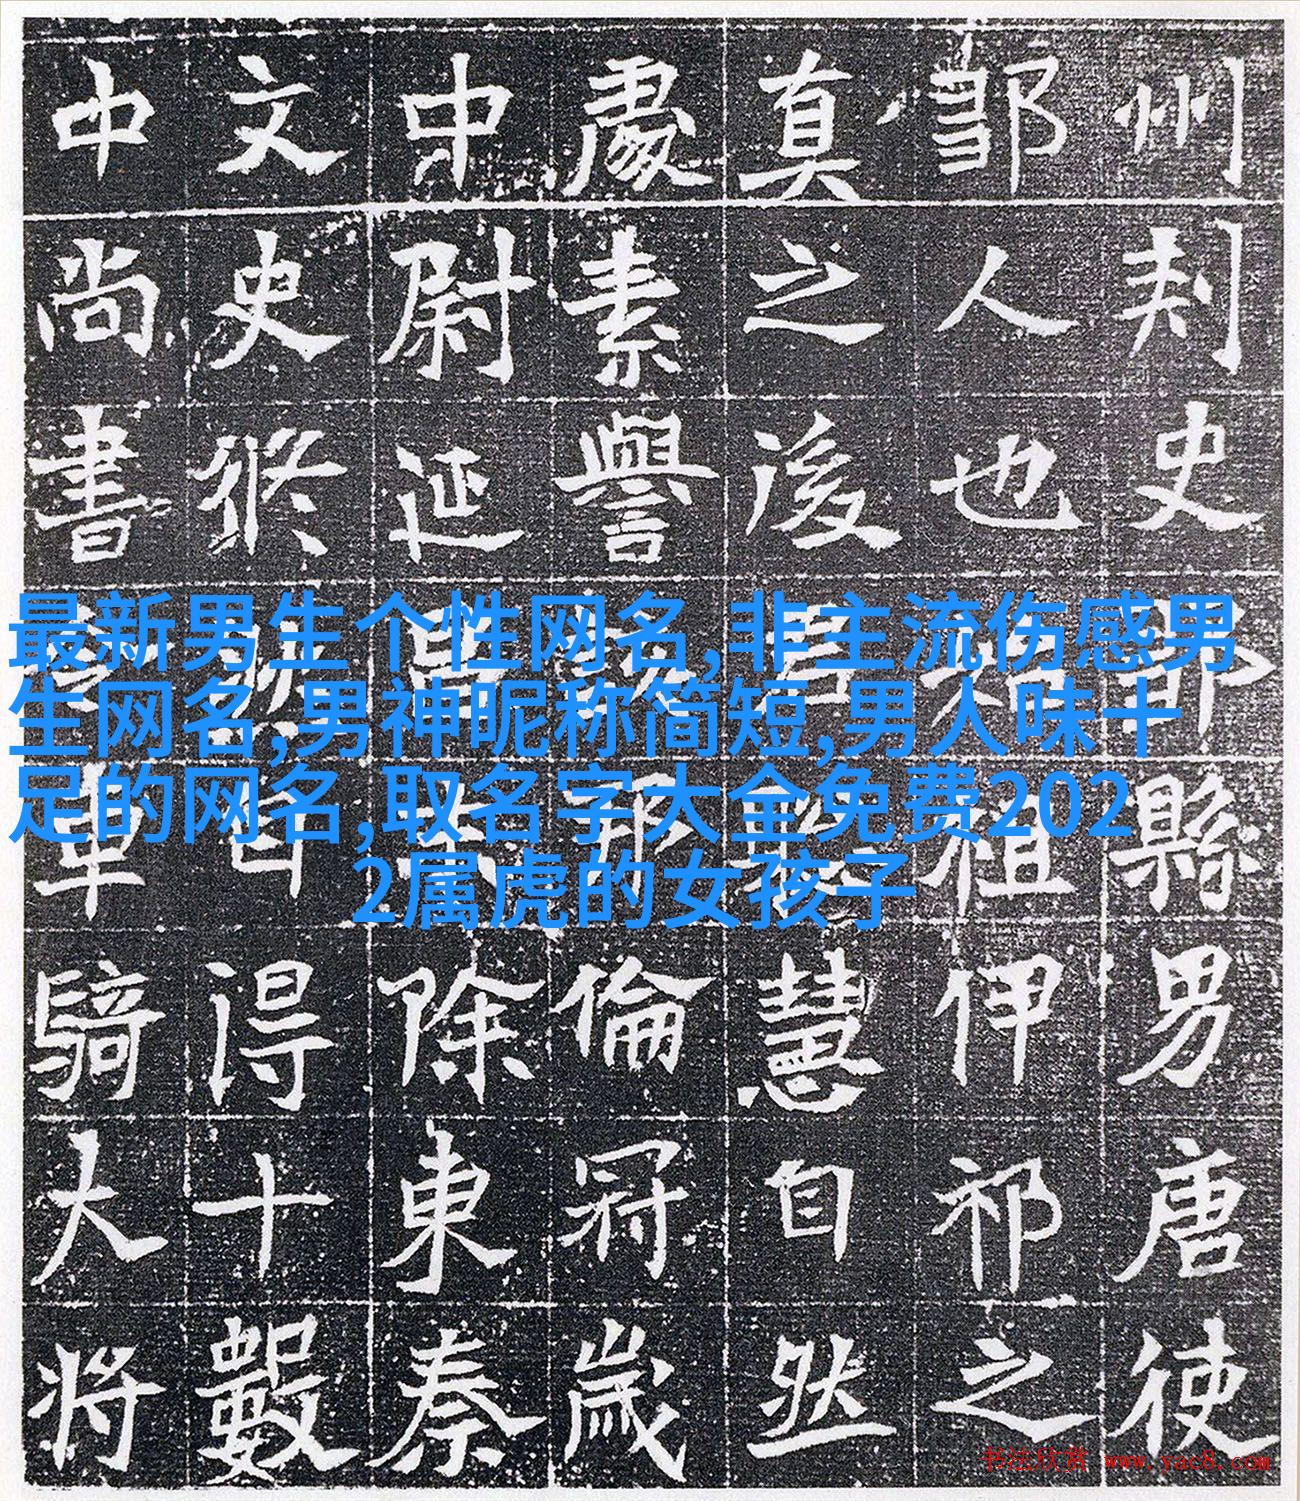 州刾史縣男唐使
人也祖伊祁之
真之後慧自然
處素譽倫冠歲
中尉延昌除東秦
文史修得十數
中尚書車騎大將
最新男生个性网名,非主流伤感男
生网名,男神昵称简短,男人味十
足的网名,取名字大全免费202
2属虎的女孩子
书法欣赏 www.yac8.com